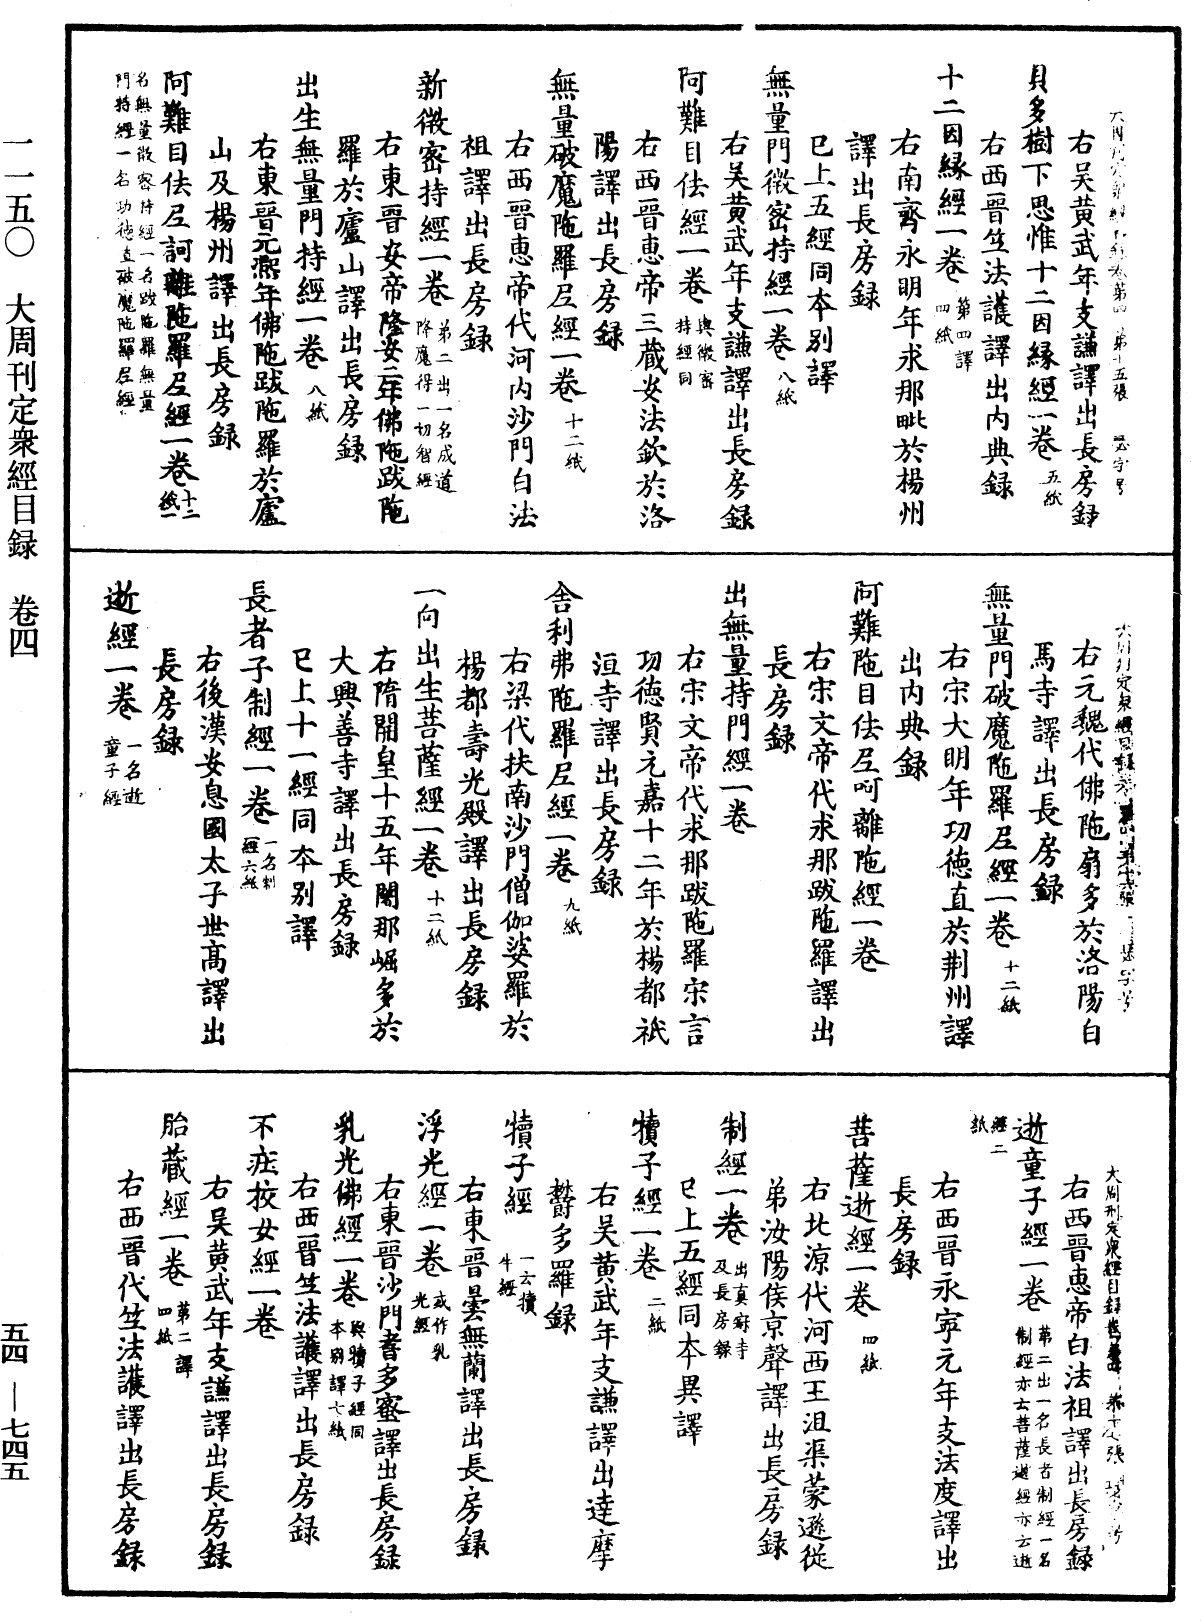 右吳黃武年支謙譯出長房録
貝多樹下思惟十二因縁經一卷 五紙
右西晉竺法護譯出內典録
十二因縁經一卷 第四譯 四紙
右南齊永明年求那毗於楊州
譯出長房録
已上五經同本別譯
無量門微密持經一卷 八紙
右吳黃武年支謙譯出長房録
阿難目佉經一卷 與微密持經同
右西晉惠帝三藏安法欽於洛
陽譯出長房録
無量破魔陁羅尼經一卷 十二紙
右西晉惠帝代河內沙門白法
祖譯出長房録
新微密持經一卷 第二出一名成道降魔得一切智經
右東晉安帝隆安二年佛陁跋陁
羅於廬山譯出長房録
出生無量門持經一卷 八紙
右東晉元熙年佛陁跋陁羅於廬
山及楊州譯出長房録
阿難目佉尼訶離陁羅尼經一卷 十二紙一
名無量微密持經一名跋陁羅無量
門持經一名功德直破魔陁羅尼經
右元魏代佛陁扇多於洛陽白
馬寺譯出長房録
無量門破魔陁羅尼經一卷 十二紙
右宋大明年功德直於荆州譯
出內典録
阿難陁目佉尼呵離陁經一卷
右宋文帝代求那跋陁羅譯出
長房録
出無量持門經一卷
右宋文帝代求那跋陁羅宋言
功德賢元嘉十二年於楊都祇
洹寺譯出長房録
舍利弗陁羅尼經一卷 九紙
右梁代扶南沙門僧伽婆羅於
楊都壽光殿譯出長房録
一向出生菩薩經一卷 十二紙
右隋開皇十五年闍那崛多於
大興善寺譯出長房録
已上十一經同本別譯
長者子制經一卷 一名制經六紙
右後漢安息國太子世高譯出
長房録
逝經一卷 一名逝童子經
大周刊定衆經目録
右西晉惠帝白法祖譯出長房録
逝童子經一卷 第二出一名長者制經一名制經亦云菩薩逝經亦云逝
經二紙
右西晉永寧元年支法度譯出
長房録
菩薩逝經一卷 四紙
右北涼代河西王沮渠蒙遜從
弟汝陽侯京聲譯出長房録
制經一卷 出真寂寺及長房録
已上五經同本異譯
犢子經一卷 二紙
右吳黃武年支謙譯出達摩
欝多羅録
犢子經 一云犢牛經
右東晉曇無蘭譯出長房録
浮光經一卷 或作乳光經
右東晉沙門耆多蜜譯出長房録
乳光佛經一卷 與犢子經同本別譯七紙
右西晉竺法護譯出長房録
不莊挍女經一卷
右吳黃武年支謙譯出長房録
胎藏經一卷 第二譯 四紙
右西晉代竺法護譯出長房録
一一五〇 大周刊定衆經目録 卷四
五四 — 七四五